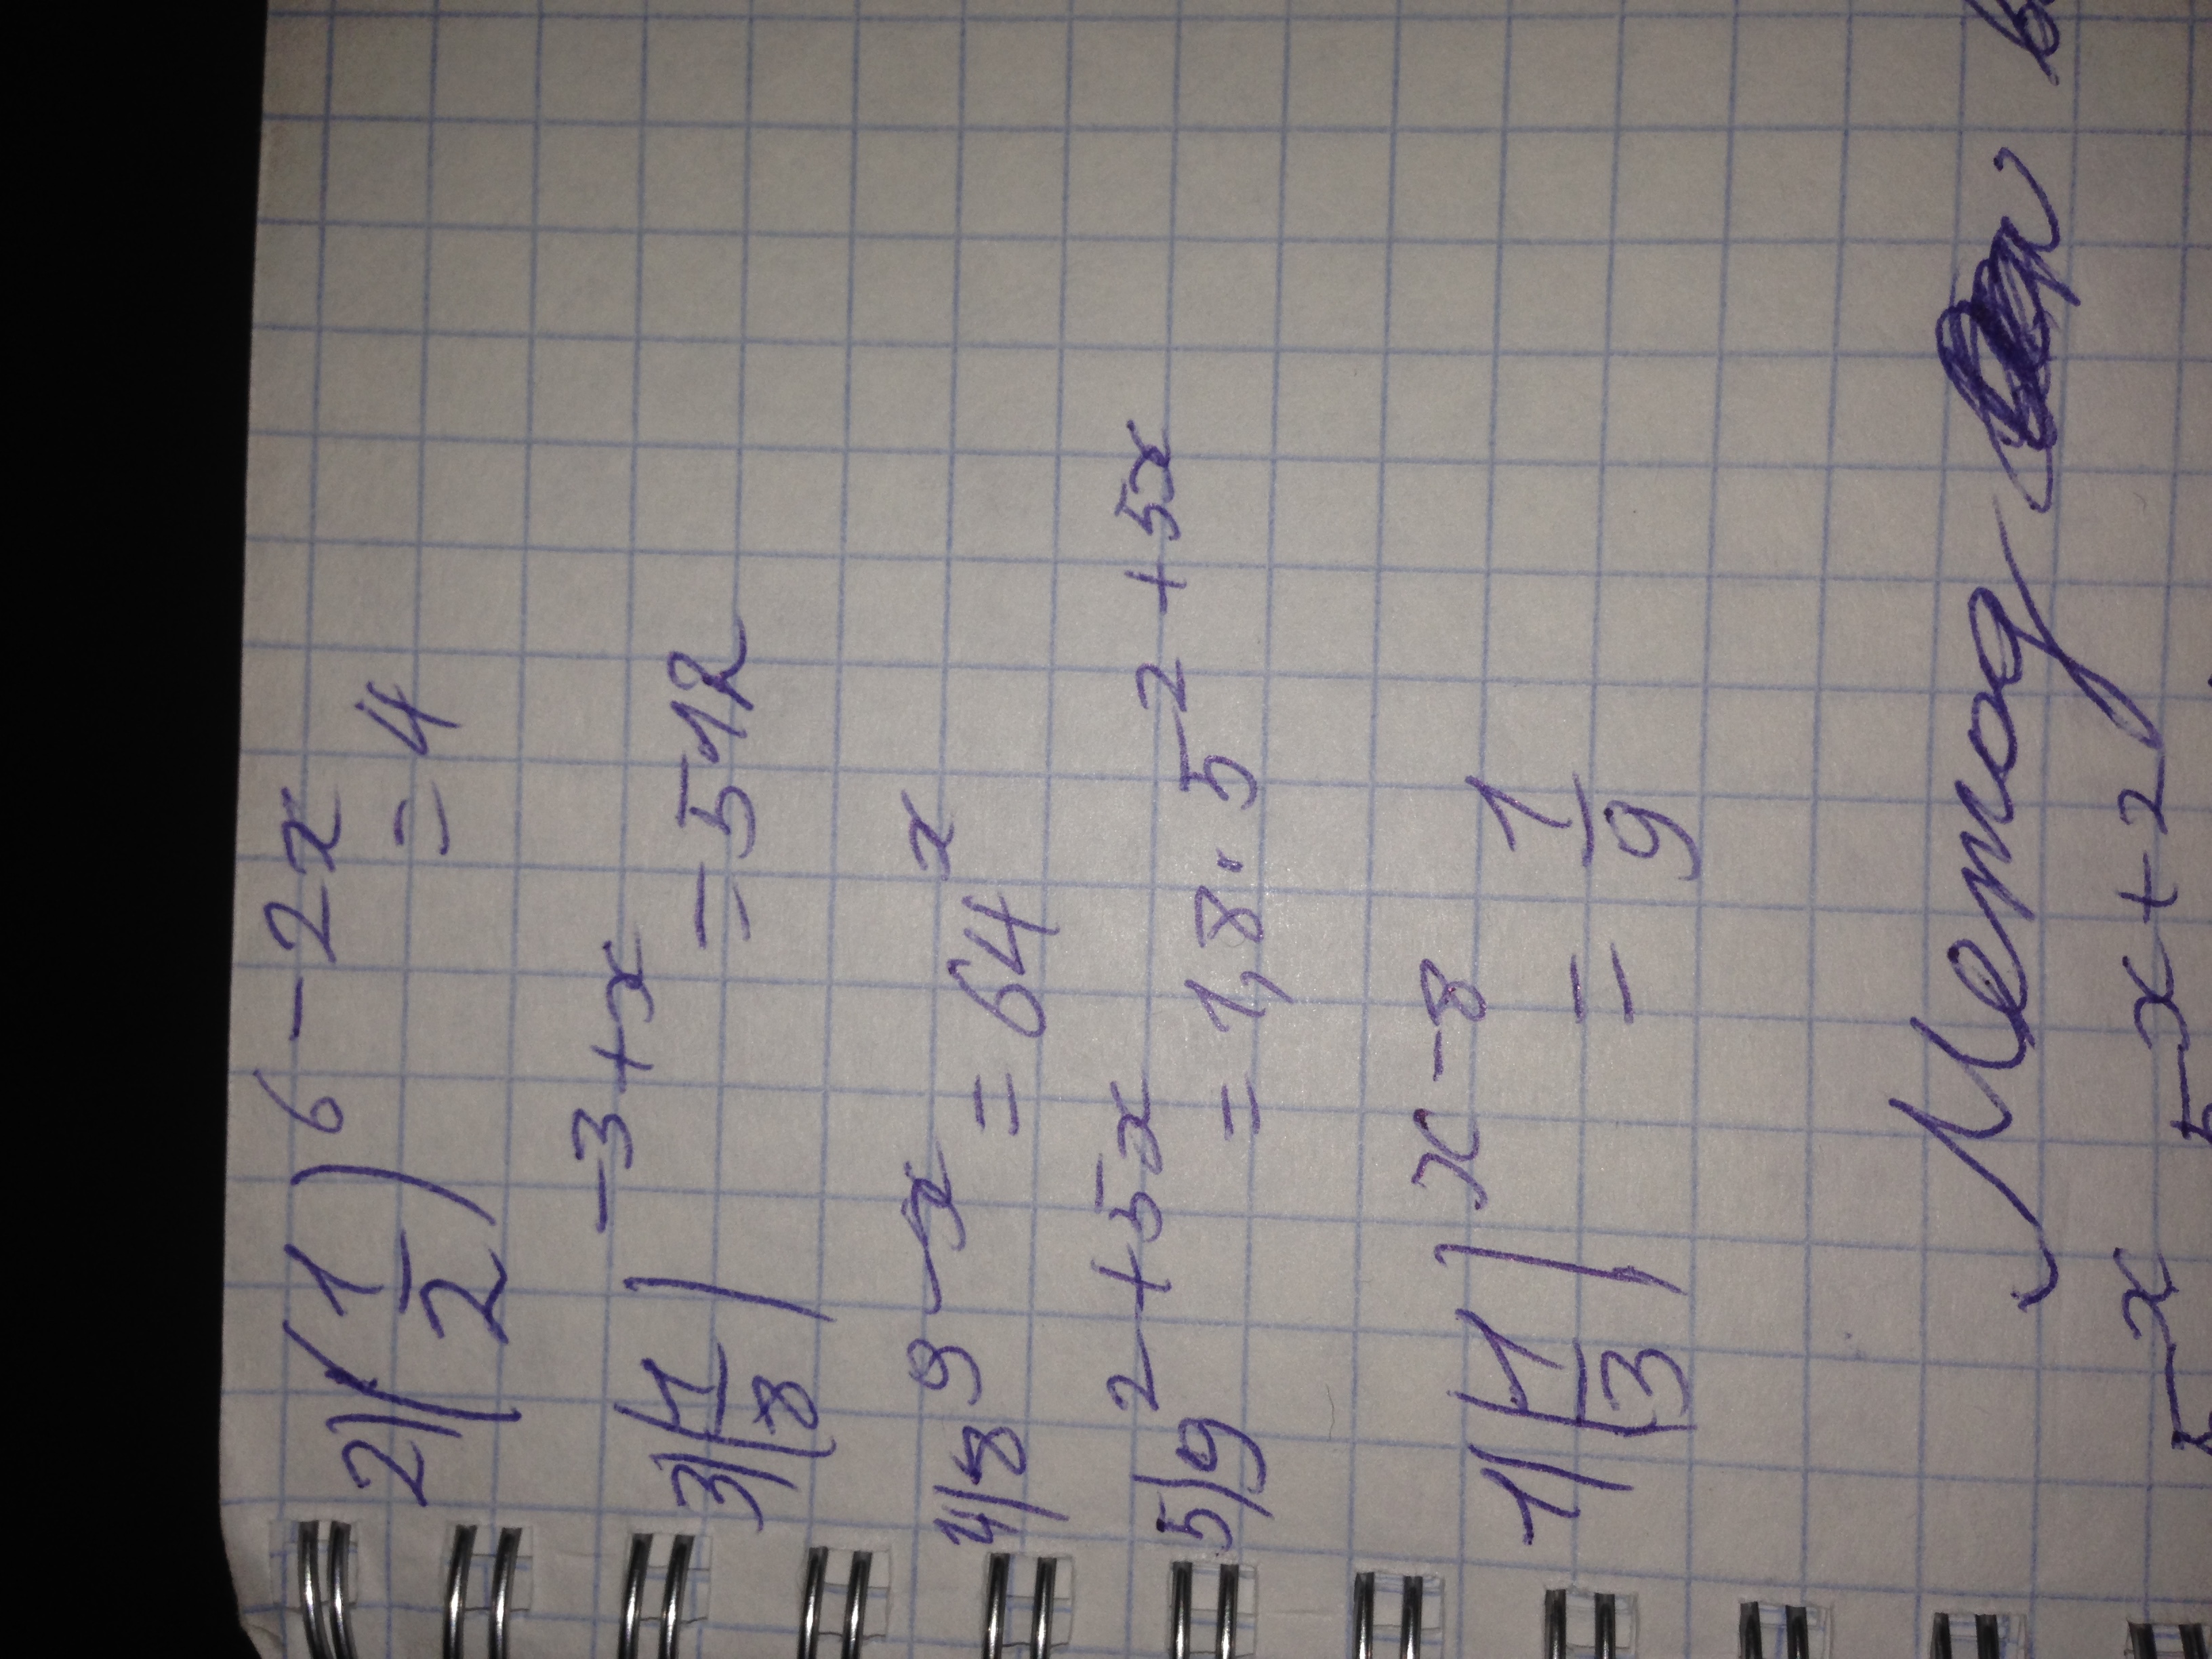 2) (1/2)^6-2x = 4
3) (1/8)^-3+x = 512
4) 8^9-x = 64^x
5) 9^2+5x = 1,8 · 5^2+5x
1) (1/3)^x-8 = 1/9
Метод
5^x 5^x+2